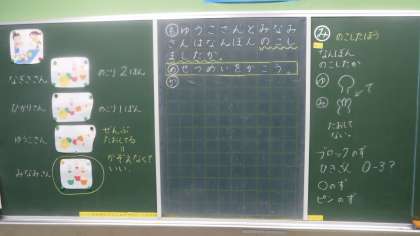 なぎささん
のこり2ほん
ひかりさん
のこり1ぽん
ゆうこさん
ぜんぶ
たおしてる
=
かぞえなくて
いい。
みなみさん
も ゆうこさんとみなみ
さんはなんぼんのこし
ましたか。
め せつめいをかこう。
か
み のこしたほう
なんぼん
のこしたか
ゆ
み
て
たおして
ない。
ブロックのず
ひきざん 0-3?
○のず
ピンのず